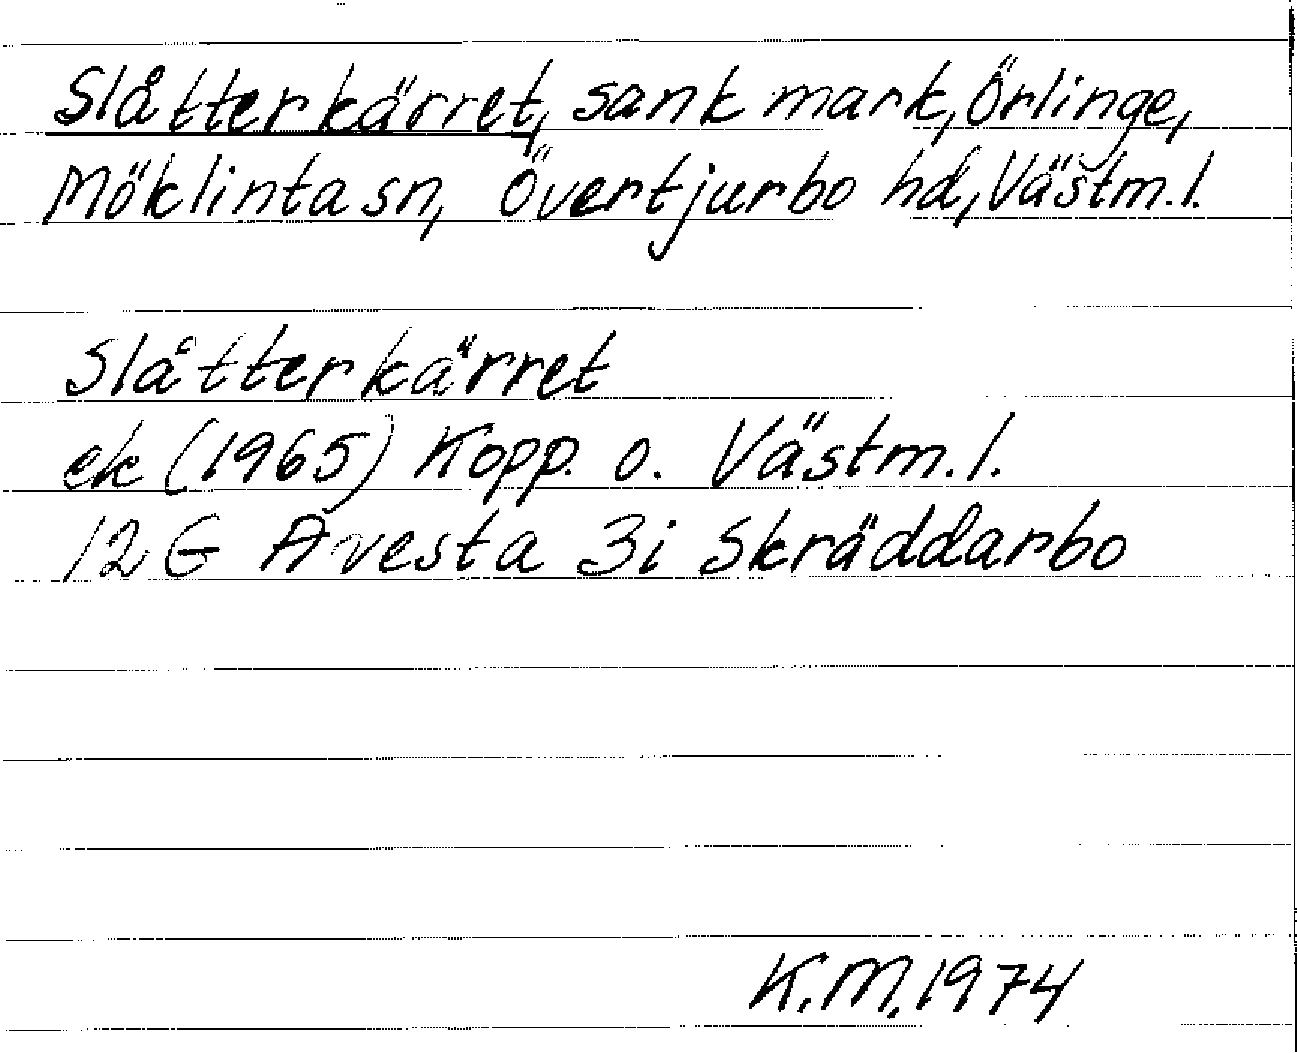 Slåtterkärret, sank mark, Örlinge,
Möklinta sn, Övertjurbo hd, Västm.l.
Slåtterkärret
ek (1965) Kopp. o. Västm.l.
12 G Avesta 3i Skräddarbo
K.M. 1974